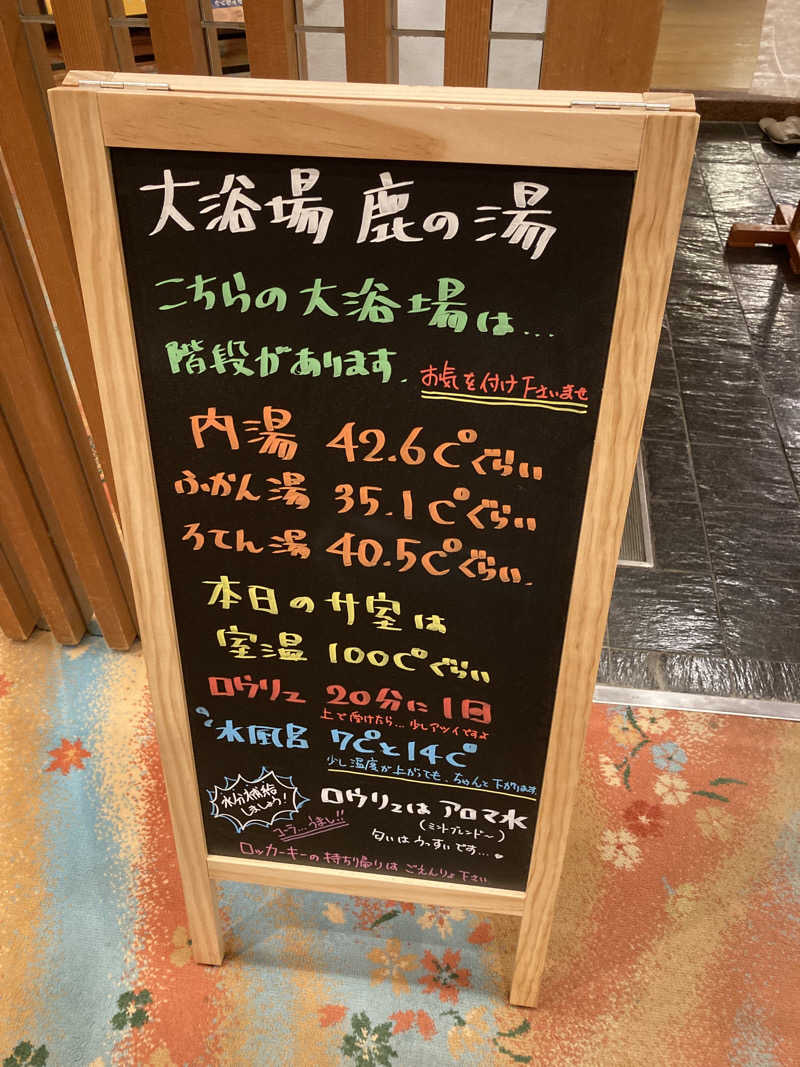 大浴場 鹿の湯
こちらの大浴場は...
階段があります.
お気を付け下さいませ
内湯 42.6C°ぐらい
ふかん湯 35.1C°ぐらい
ろてん湯 40.5C°ぐらい.
本日のサ室は
室温 100C°ぐらい
ロウリュ 20分に1回
上で受けたら...少しアツイですよ
水風呂 7C°と14C°
少し温度が上がっても、ちゃんと下がります
水分補給
しましょう!
コーラ...うまし!!
ロウリュは アロマ水
(ミントブレンド〜)
匂いはうっすいです...
ロッカーキーの持ち帰りは ごえんりょ下さい